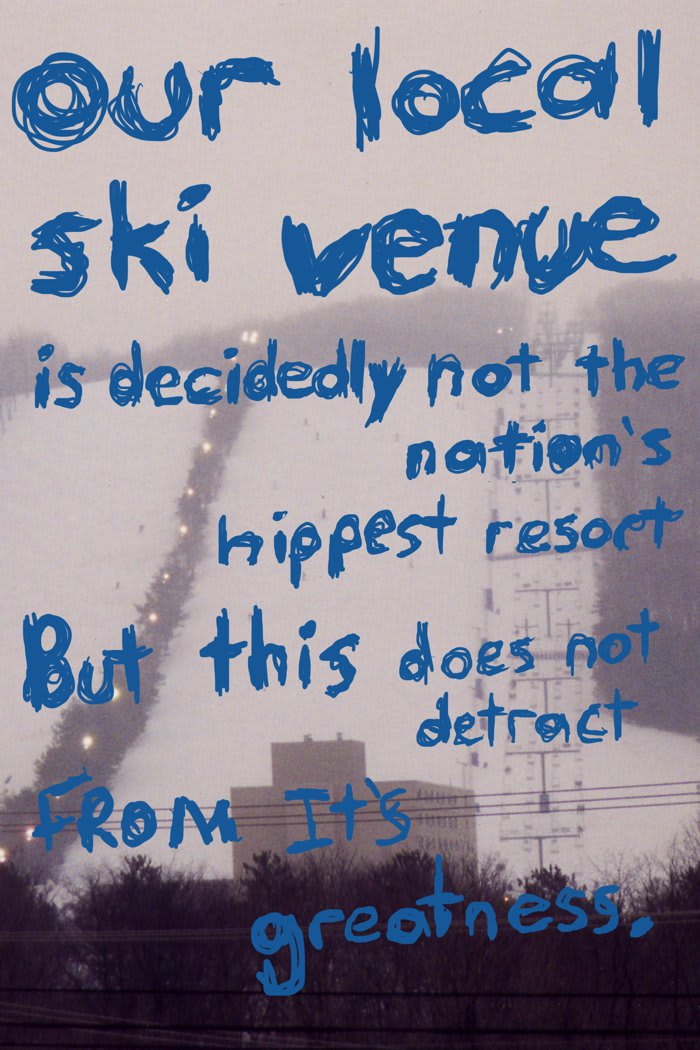 our local
ski venue
is decidedly not the
nation's
hippest resort
But this does not
detract
FROM It's
greatness.